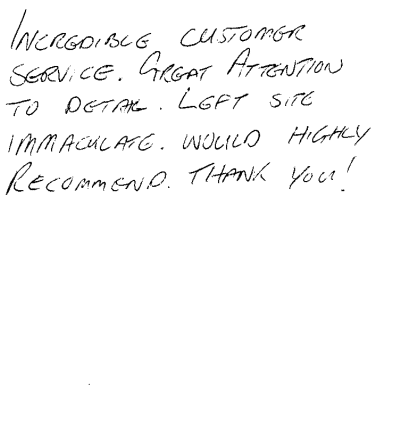 INCREDIBLE CUSTOMER
SERVICE. GREAT ATTENTION
TO DETAIL. LEFT SITE
IMMACULATE. WOULD HIGHLY
RECOMMEND. THANK YOU!